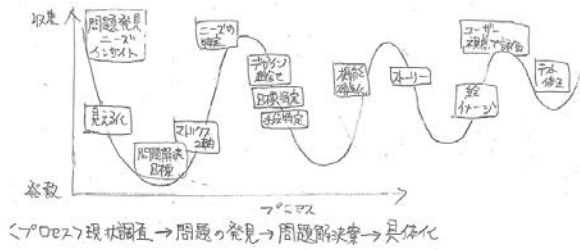 収束
問題発見
ニーズ
インサイト
見える化
問題解決
目標
マトリクス
2軸
ニーズの
特定
デザイン
目標特定
手段特定
ストーリー
絵
イメージ
ユーザー
視点で評価
テスト
修正
発散
プロセス
<プロセス>現状調査→問題の発見→問題解決案→具体化